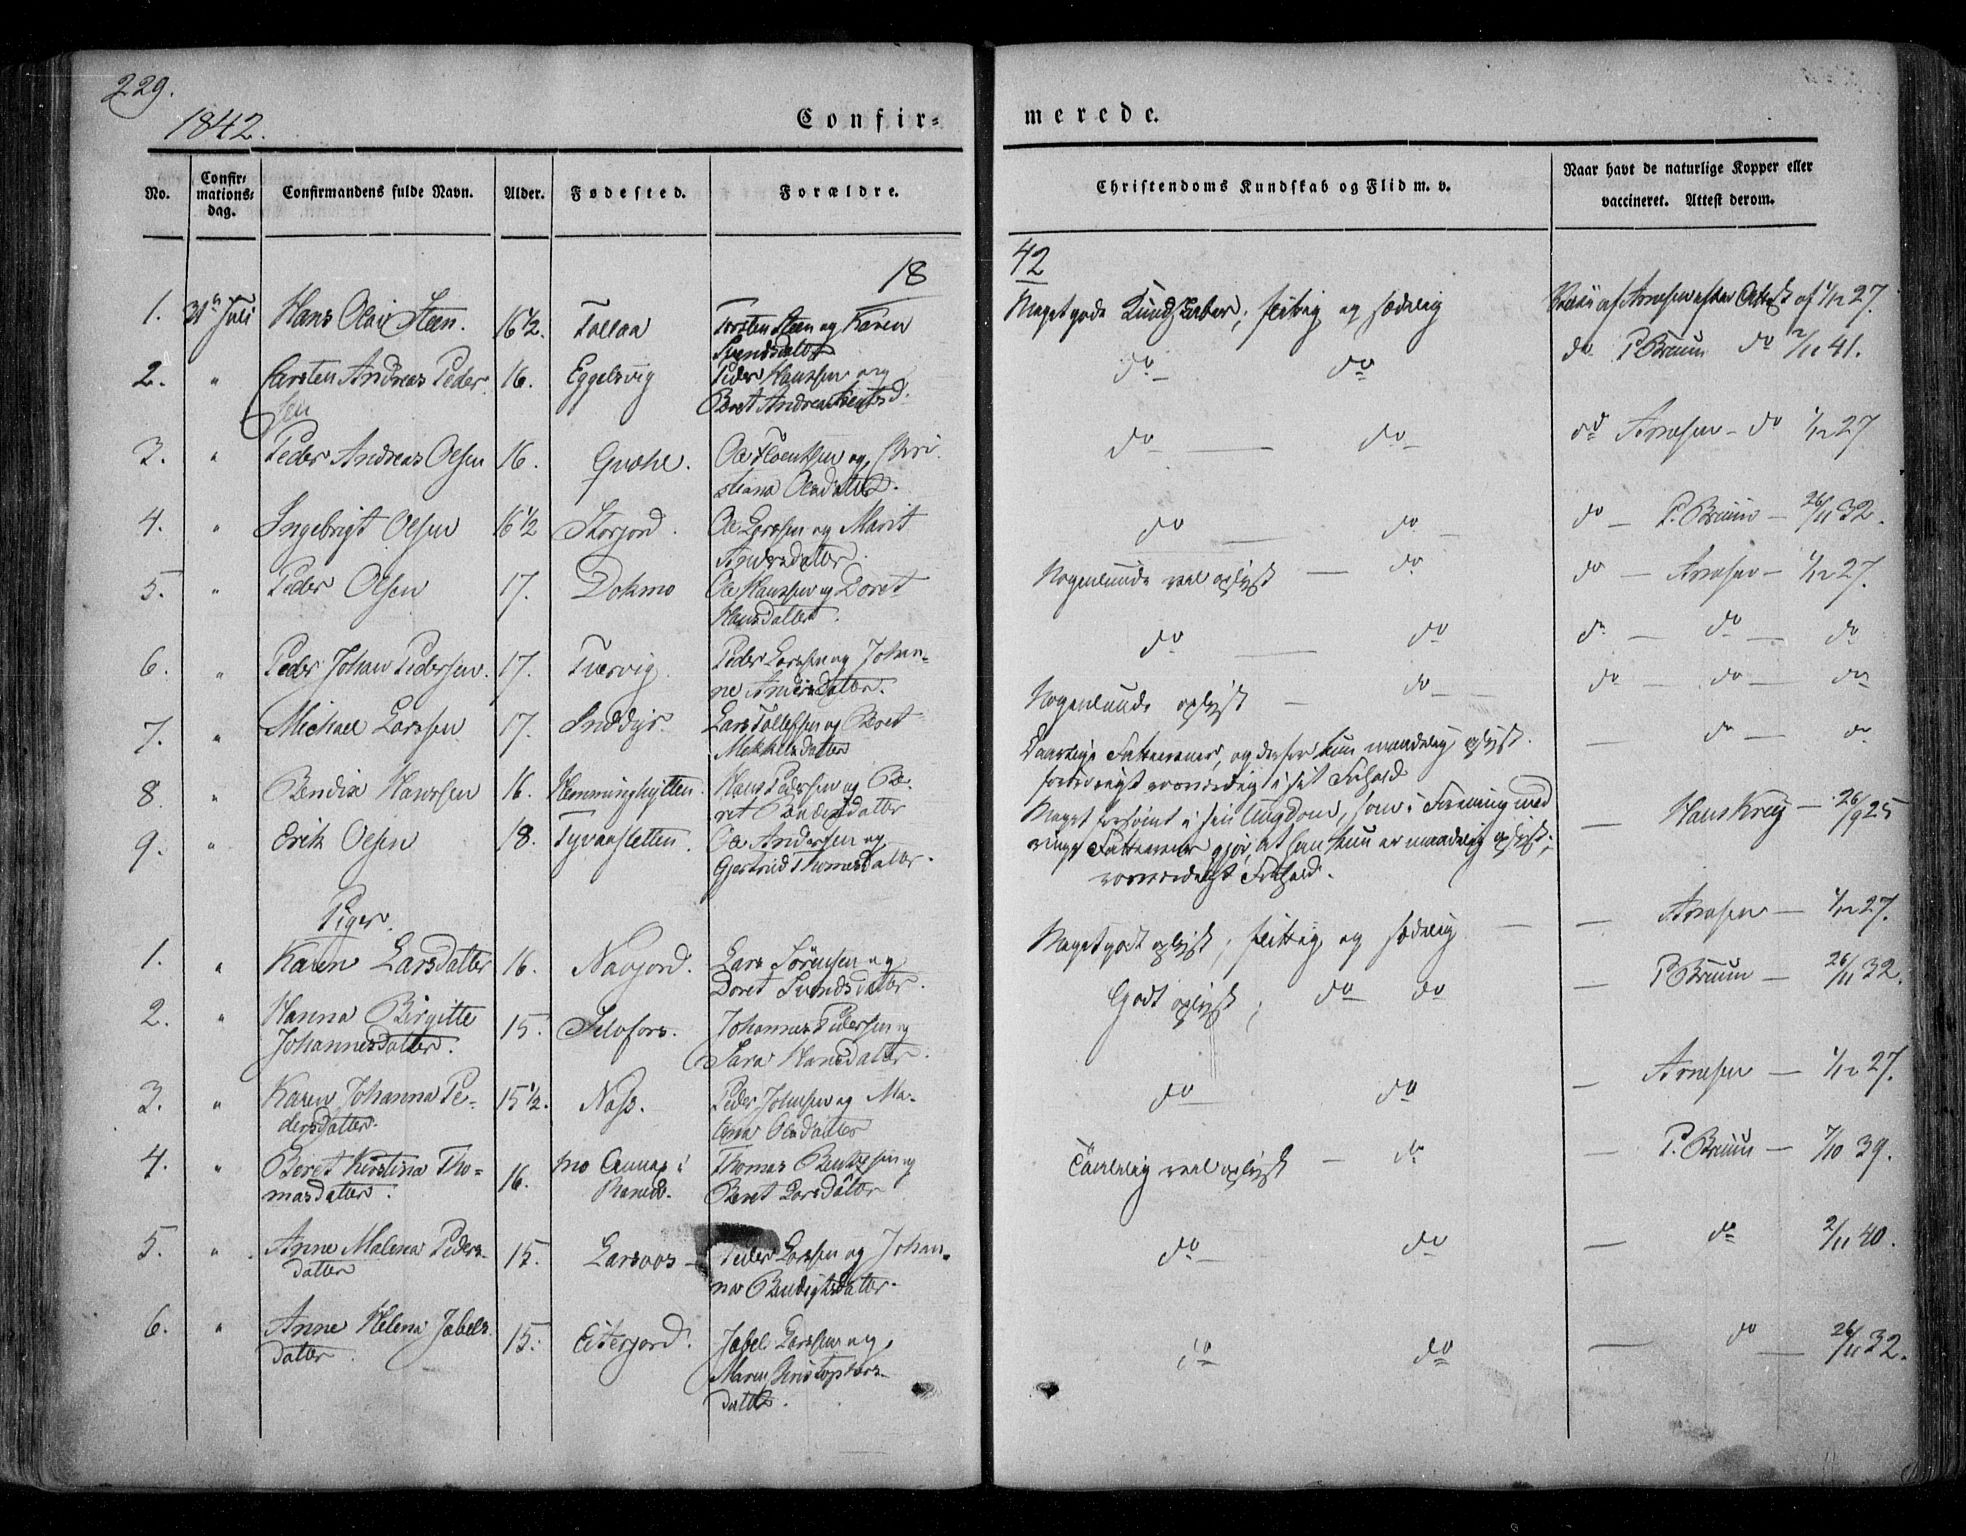 229.
1842.
Confir- merede.
No. Confir- mations- dag. Confirmandens fulde Navn. Alder. Fødested. Forældre. Christendoms Kundskab og Flid m. v. Naar havt de naturlige Kopper eller vaccineret. Attest derom.
18 42
1. 31te Juli Hans Olai Steen. 16 1/2. Tollaa Torsten Steen og Karen Svendsdatter Meget gode Kundskaber; flittig og sædelig Vacc. af Arnesen efter Attest af 1/12 27.
2. " Carsten Andreas Peder- sen 16. Eggelsvig Peder Hanssen og Beret Andrea d. do do do P. Bruun do 2/11 41.
3. " Peder Andreas Olsen 16. Græhl. Ole og Chri- stiana Olsdatter. do do do Arnesen do 1/12 27
4. " Ingebrigt Olsen 16 1/2 Storjord. Ole Larssen og Marit Andersdatter. do do do P. Bruun 26/11 32.
5. " Peder Olsen 17. Dokmo Ole Hanssen og Doret Hansdatter. Nogenlunde vel oplyst do do Arnesen 1/12 27.
6. " Peder Johan Pedersen. 17. Tvervig. Peder Larssen og Johan- ne Andersdatter. do do do do do
7. " Michael Larssen 17. Inddyr. Lars Tollefsen og Beret Mekkelsdatter Nogenlunde oplyst do do do do
8. " Bendix Hanssen 16. Hemminghytten. Hans Pedersen og Be- ret Bendixdatter Daarlige Fatteevner, og derfor kun maadelig oplyst. forresten i sit Forhold do do
9. " Erik Olsen 18. Tyvaasletten. Ole Andersen og Gjertrud Thomesdatter. Meget forsømt i sin Ungdom, som i Forening med ringe Fatteevner gjør, at han kun er maadelig oplyst; Forhold. Hans Krey 26/9 25
Piger.
1. " Karen Larsdatter 16. Navjord. Lars Sørensen og Doret Svendsdatter. Meget godt oplyst, flittig og sædelig Arnesen 1/12 27.
2. " Hanna Birgitte Johannesdatter. 15. Selsfors. Johannes Pedersen og Sara Hansdatter. Godt oplyst; do do P. Bruun 26/11 32.
3. " Karen Johanna Pe- dersdatter. 15 1/2. Næs. Peder Johnsen og Ma- lena Olsdatter do do Arnesen 1/12 27.
4. " Beret Kirstina Tho- masdatter. 16. i Ranen. Thomas Bentzen og Beret Larsdatter Taalelig vel oplyst do P. Bruun 7/10 39.
5. " Anne Malena Peders- datter 15. Larsoos Peder Larssen og Johan- na Bendigtsdatter. do do do 2/11 40.
6. " Anne Helena Jabels- datter. 15. Eiterjord. Jabel Larssen og Maren Christophers- datter. do do do 26/11 32.